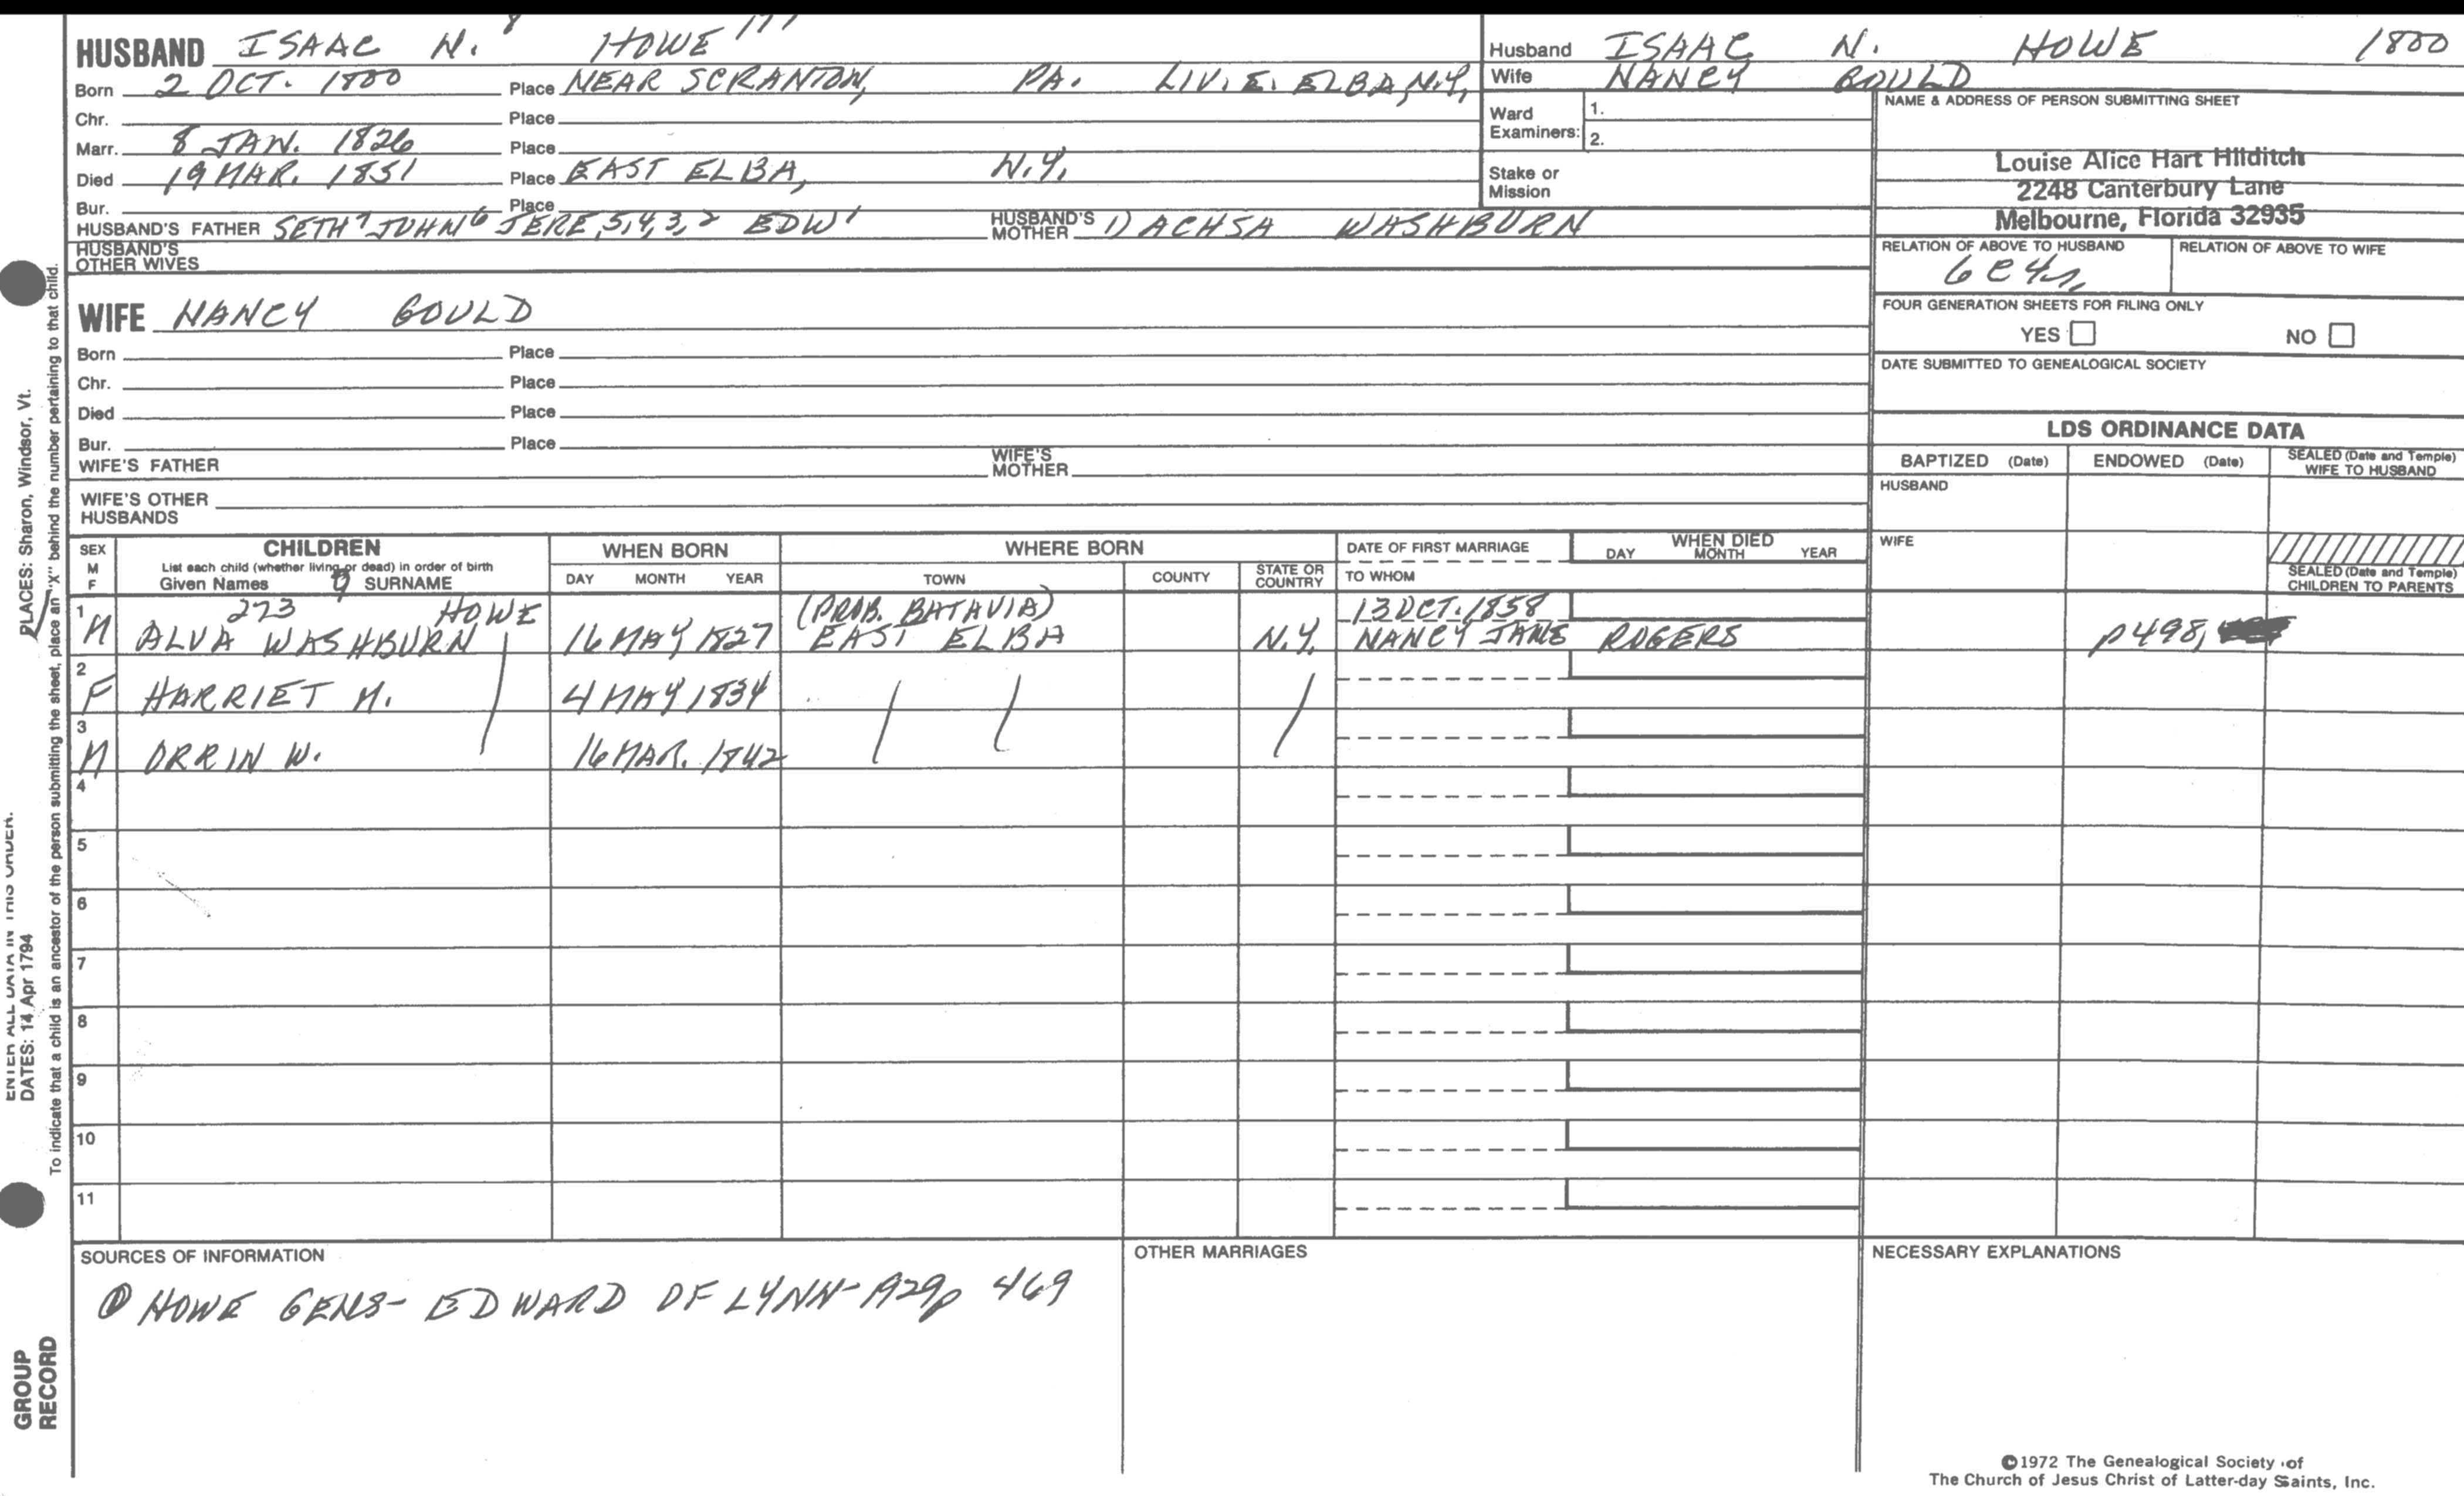 HUSBAND ISAAC N. 8 HOWE 171
Born 2 OCT. 1800 Place NEAR SCRANTON, PA. LIV. E. ELBA, N.Y.
Chr. Place
Marr. 8 JAN. 1826 Place
Died 19 MAR. 1851 Place EAST ELBA, N.Y.
Bur. Place
HUSBAND'S FATHER SETH 7 JOHN 6 JERE 5,4,3,2 EDW 1 HUSBAND'S MOTHER 1) ACHSA WASHBURN
HUSBAND'S OTHER WIVES
Husband ISAAC N. HOWE 1800
Wife NANCY GOULD
Ward Examiners: 1.
2.
Stake or Mission
NAME & ADDRESS OF PERSON SUBMITTING SHEET
Louise Alice Hart Hilditch
2248 Canterbury Lane
Melbourne, Florida 32935
RELATION OF ABOVE TO HUSBAND RELATION OF ABOVE TO WIFE
FOUR GENERATION SHEETS FOR FILING ONLY
YES NO
DATE SUBMITTED TO GENEALOGICAL SOCIETY
WIFE NANCY GOULD
Born Place
Chr. Place
Died Place
Bur. Place
WIFE'S FATHER WIFE'S MOTHER
WIFE'S OTHER HUSBANDS
LDS ORDINANCE DATA
BAPTIZED (Date) ENDOWED (Date) SEALED (Date and Temple) WIFE TO HUSBAND
HUSBAND
WIFE
SEALED (Date and Temple) CHILDREN TO PARENTS
SEX M F
CHILDREN
List each child (whether living or dead) in order of birth
Given Names SURNAME
WHEN BORN
DAY MONTH YEAR
WHERE BORN
TOWN COUNTY STATE OR COUNTRY
DATE OF FIRST MARRIAGE
TO WHOM
WHEN DIED
DAY MONTH YEAR
1 273 HOWE (PROB. BATAVIA) 13 OCT. 1858
M ALVA WASHBURN 16 MAY 1827 EAST ELBA N.Y. NANCY JANE ROGERS p498,
2
F HARRIET M. 4 MAY 1834
3
M ORRIN W. 16 MAR. 1842
4
5
6
7
8
9
10
11
SOURCES OF INFORMATION
① HOWE GENS- EDWARD OF LYNN- A29p 469
OTHER MARRIAGES
NECESSARY EXPLANATIONS
©1972 The Genealogical Society of
The Church of Jesus Christ of Latter-day Saints, Inc.
PLACES: Sharon, Windsor, Vt.
To indicate that a child is an ancestor of the person submitting the sheet, place an "X" behind the number pertaining to that child.
ENTER ALL DATA IN THIS ORDER.
DATES: 14 Apr 1794
GROUP
RECORD